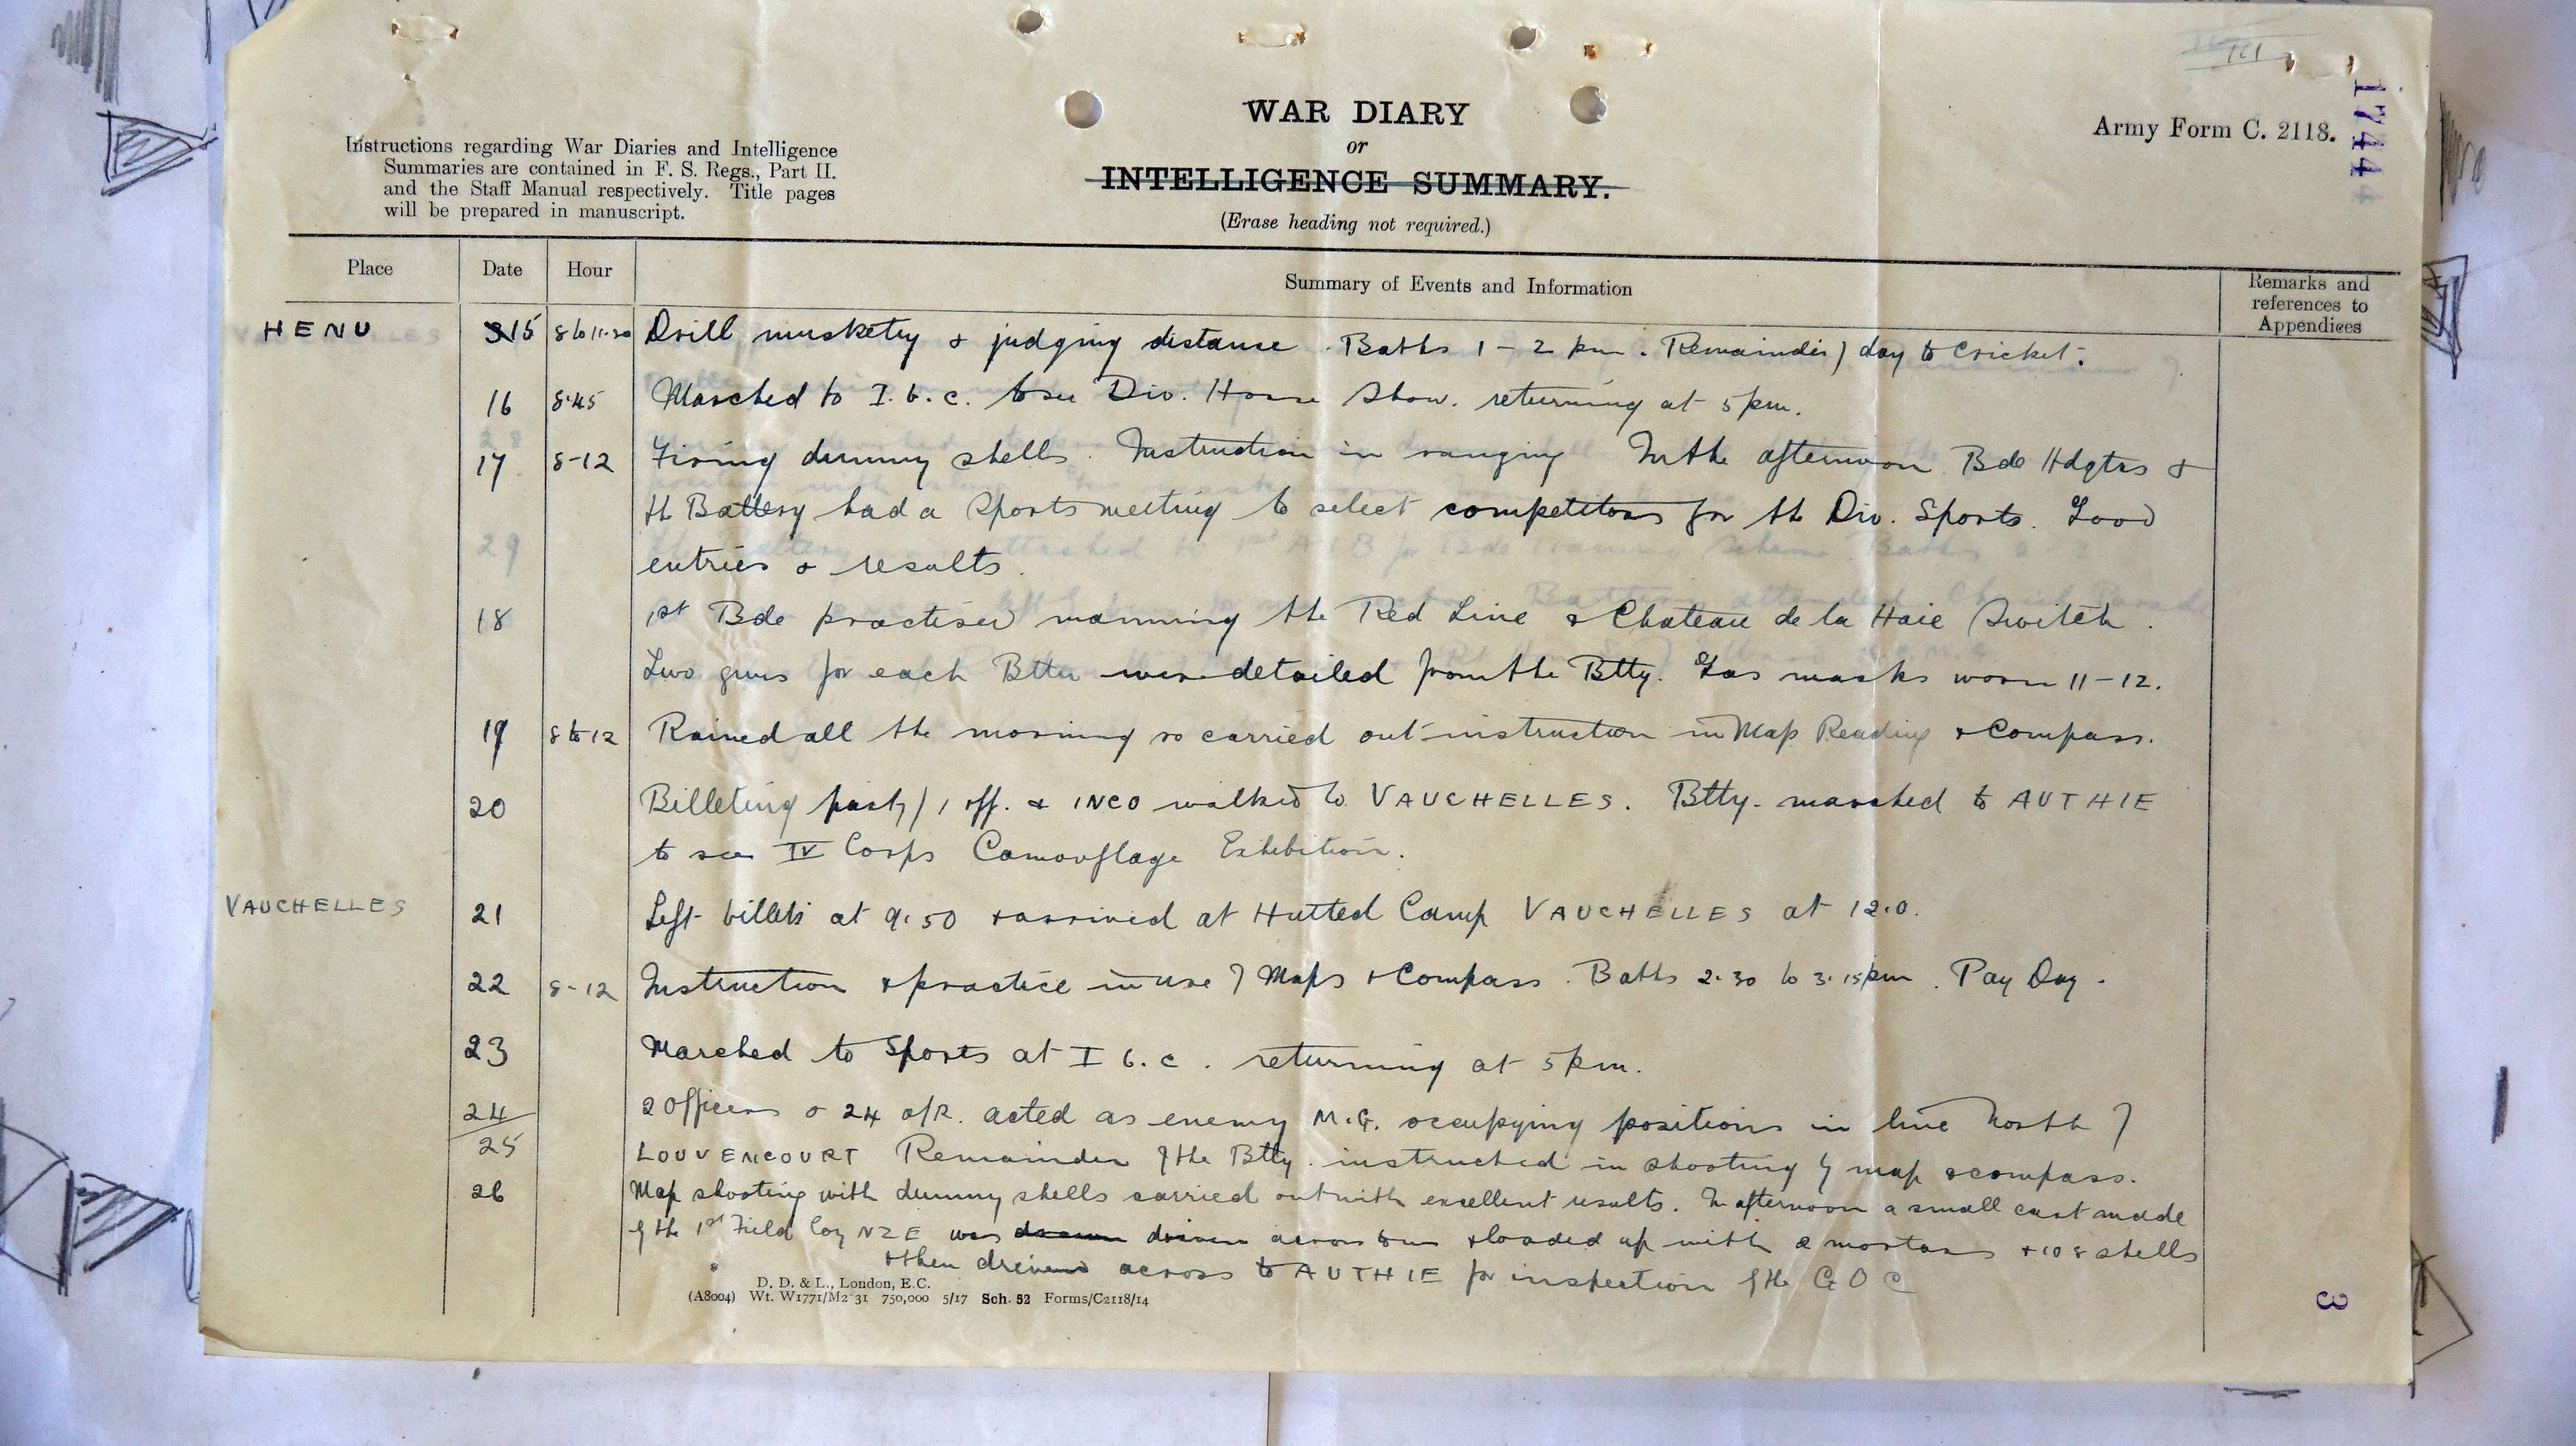 161
17444
WAR DIARY
or
INTELLIGENCE SUMMARY.
(Erase heading not required.)
Army Form C. 2118.
Instructions regarding War Diaries and Intelligence
Summaries are contained in F. S. Regs., Part II.
and the Staff Manual respectively. Title pages
will be prepared in manuscript.
Place Date Hour Summary of Events and Information Remarks and references to Appendices
HENU 15 8 to 11.30 Drill musketry & judging distance. Baths 1 - 2 pm. Remainder of day to Cricket.
16 8.45 Marched to I.6.c. to see Div. Horse Show. returning at 5 pm.
17 8-12 Firing dummy shells. Instruction in ranging In the afternoon Bde Hdqtrs &
the Battery had a Sports meeting to select competitors for the Div. Sports. Good
entries & results.
18 1st Bde practised manning the Red Line & Chateau de la Haie Switch.
Two guns for each Bttn were detailed from the Btty. Gas masks worn 11-12.
19 8 to 12 Rained all the morning so carried out instruction in Map Reading & Compass.
20 Billeting party of 1 off. & 1 NCO walked to VAUCHELLES. Btty. marched to AUTHIE
to see IV Corps Camouflage Exhibition.
VAUCHELLES 21 Left billets at 9.50 & arrived at Hutted Camp VAUCHELLES at 12.0.
22 8-12 Instruction & practice in use of Maps & Compass. Baths 2.30 to 3.15 pm. Pay Day.
23 Marched to Sports at I 6.c. returning at 5 pm.
24 2 Officers & 24 o/R. acted as enemy M.G. occupying positions in line North of
25 LOUVENCOURT Remainder of the Btty. instructed in shooting by map & compass.
26 Map shooting with dummy shells carried out with excellent results. In afternoon a small cart made
by the 1st Field Coy NZE was drawn driven across & loaded up with 2 mortars & 108 shells
& then driven across to AUTHIE for inspection by the G O C
D. D. & L., London, E.C.
(A8004) Wt. W1771/M2 31 750,000 5/17 Sch. 52 Forms/C2118/14
3